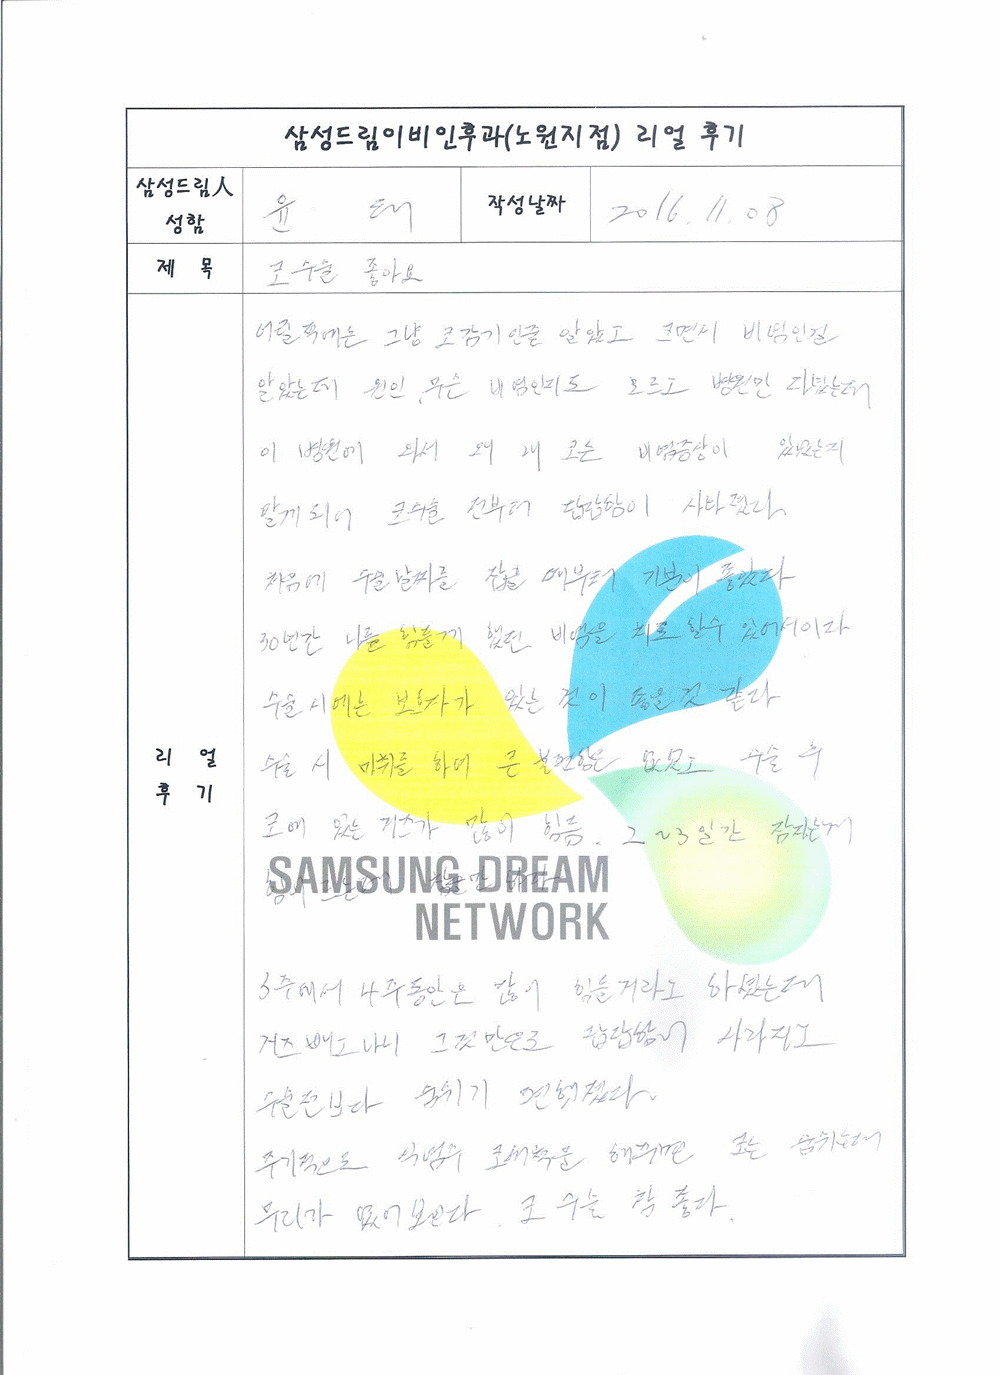 삼성드림이비인후과(노원지점) 리얼 후기
삼성드림人 성함
윤 태
작성날짜
2016.11.08
제 목
코수술 좋아요
리 얼
후 기
어릴쩍에는 그냥 코감기인줄 알았고 크면서 비염인걸
알았는데 원인, 무슨 비염인지도 모르고 병원만 다녔는데
이 병원에 와서 왜 내 코는 비염증상이 있었는지
알게되어 코수술 전부터 답답함이 사라졌다.
처음에 수술날짜를 잡을 때부터 기분이 좋았다
30년간 나를 힘들게 했던 비염을 치료 할수 있어서이다
수술시에는 보호자가 있는 것이 좋을것 같다
수술 시 마취를 하며 큰 불편함은 없었고 수술 후
코에 있는 거즈가 많이 힘듬. 2~3일간 잠자는게
힘이 드는데
SAMSUNG DREAM
NETWORK
3주에서 4주동안은 많이 힘들거라고 하셨는데
거즈 빼고나니 그것만으로 답답함이 사라지고
수술전보다 숨쉬기 편해졌다.
주기적으로 코세척을 해주면 코는 숨쉬는데
무리가 없어보인다. 코 수술 참 좋다.